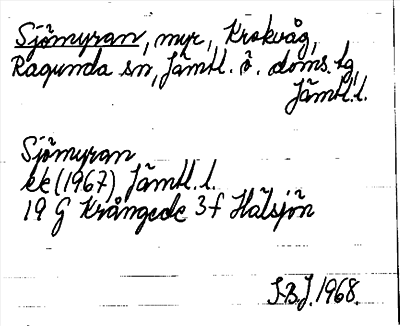 Sjömyran, myr, Krokvåg,
Ragunda sn, Jämtl. ö. doms. tg,
Jämtl. l.
Sjömyran
ek (1967) Jämtl. l.
19 G Krångede 3f Halsjön
S.B.J. 1968.